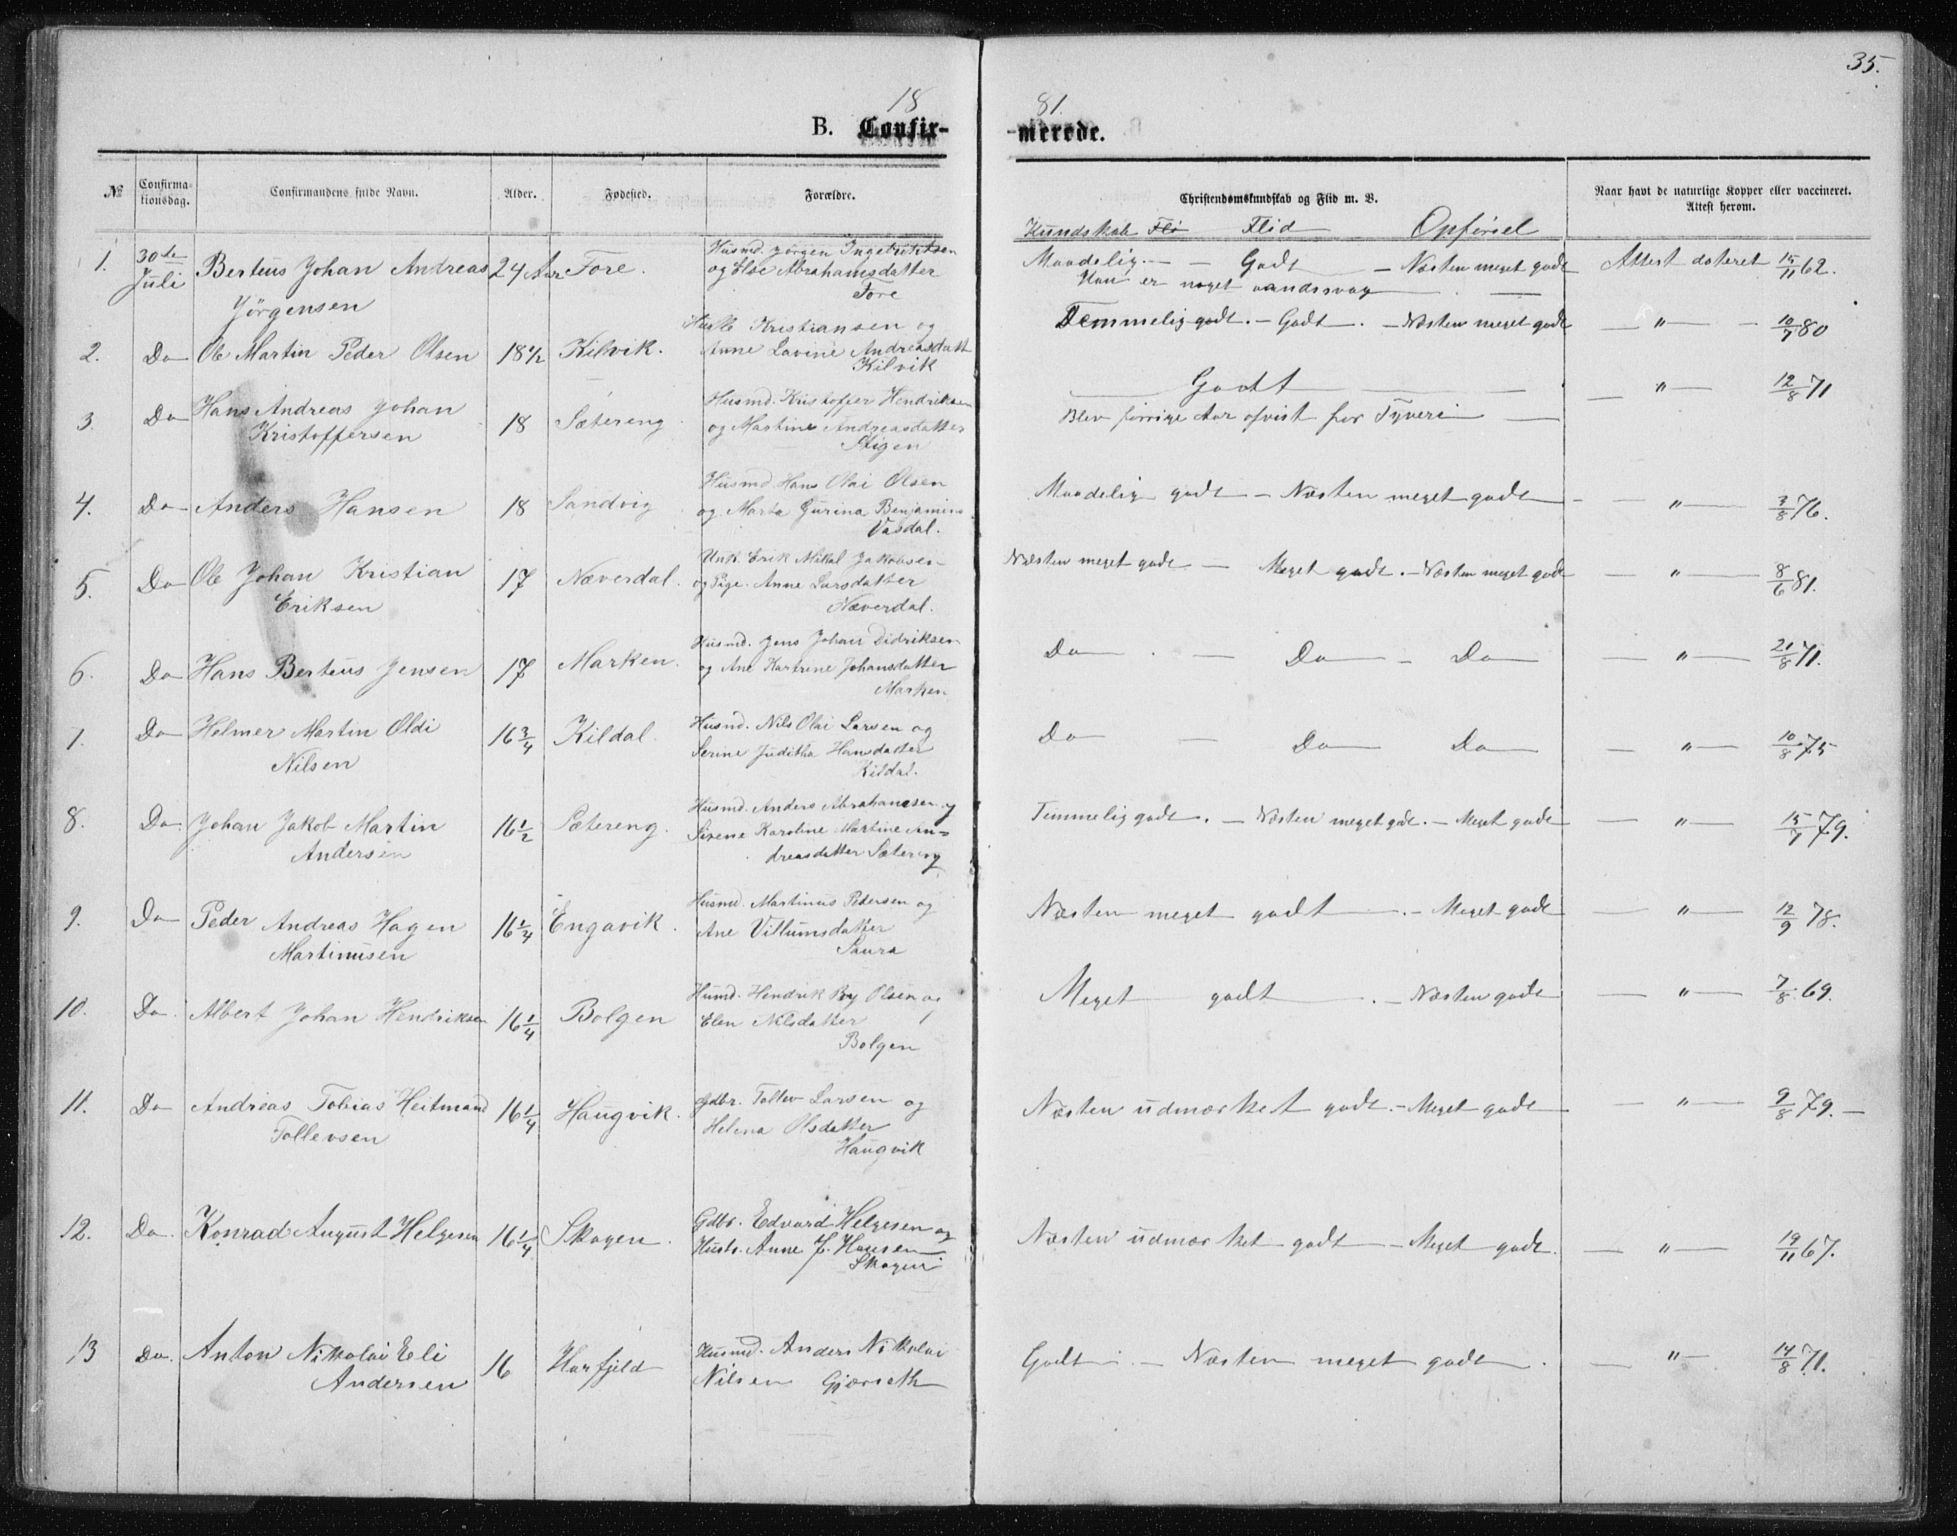 35.
18 81.
B. Confir- -merede.
№ Confirma-tionsdag. Confirmandens fulde Navn. Alder. Fødested. Forældre. Christendomskundskab og Flid m. V. Naar havt de naturlige Kopper eller vaccineret. Attest herom.
Kundskab Flid Opførsel
1. 30te Juli Berteus Johan Andreas 24 Aar Fore. Husmd. Jørgen Ingebriktsen Maadelig — Godt — Næsten meget godt Attest dateret 15/11 62.
Jörgensen og Else Abrahamsdatter Han er noget aandssvag
Fore
2. Do Ole Martin Peder Olsen 18 1/2 Kilvik. Kristiansen og Temmelig godt. — Godt. — Næsten meget godt — " — 10/7 80
Anne Lavine Andreasdatt
Kilvik
3. Do Hans Andreas Johan 18 Sætereng Husmd. Kristoffer Hendriksen Godt — " — 12/8 71
Kristoffersen og Martine Andreasdatter Blev forrige Aar afvist for Tyveri
Stigen
4. Do Anders Hansen 18 Sandvig Husmd. Hans Olai Olsen Maadelig godt — Næsten meget godt — " — 3/8 76.
og Marta Gurina Benjamins
Vasdal.
5. Do Ole Johan Kristian 17 Næverdal. Unk. Erik Mikal Jakobsen Næsten meget godt — Meget godt. — Næsten meget godt — " — 8/6 81.
Eriksen og Pige Anne Larsdatter
Næverdal.
6. Do Hans Berteus Jensen 17 Marken. Husmd. Jens Johan Didriksen Do — Do — Do — " — 21/8 71.
og Ane Kartrine Johansdatter
Marken
7. Do Helmer Martin Oldi 16 3/4 Kildal. Husmd. Nils Olai Larsen og Do — Do Do — " — 10/8 75
Nilsen Serine Juditha Hansdatter
Kildal.
8. Do. Johan Jakob Martin 16 1/2 Sætereng. Husmd. Anders Abrahamsen og Temmelig godt. — Næsten meget godt. — Meget godt — " — 15/7 79.
Andersen Sirene Karoline Martine An=
dreasdatter Sætereng
9. Do Peder Andreas Hagen 16 1/4 Engavik. Husmd. Martinus Pedersen og Næsten meget godt. — Meget godt — " — 12/9 78.
Martinusen Ane Villumsdatter
Saura
10. Do. Albert Johan Hendriksen 16 1/4 Bolgen Husmd. Hendrik Olsen og Meget godt. — Næsten godt — " — 7/8 69.
Elen Nilsdatter
Bolgen
11. Do Andreas Tobias Heitmand 16 1/4 Haugvik. Gdbr. Tollev Larsen og Næsten udmærket godt. — Meget godt — " — 9/8 79. —
Tollevsen Helena Olsdatter
Haugvik
12. Do. Konrad August Helgesen 16 1/4 Skogen. Gdbr. Edvard Helgesen og Næsten udmærket godt — Meget godt. — " — 19/11 67.
Hustr. Anne J. Hansen
Skogen
13 Do. Anton Nikolai Eli 16 Harfjeld Husmd. Anders Nikolai Godt. — Næsten meget godt. — " — 14/8 71.
Andersen Nilsen Gjærseth